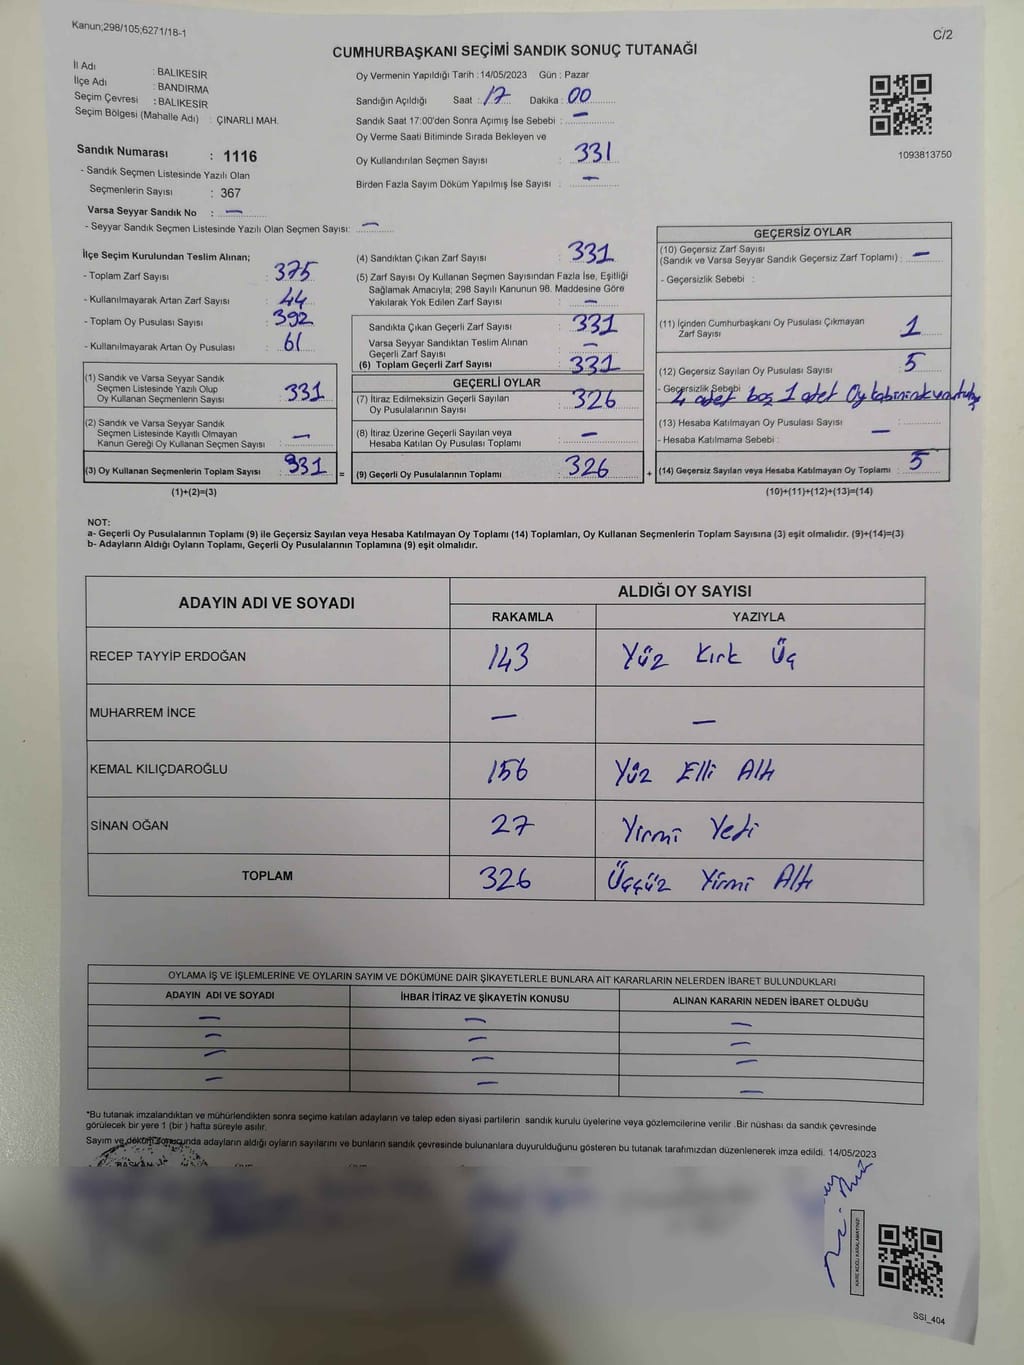 Kanun;298/105;6271/18-1
C/2
CUMHURBAŞKANI SEÇİMİ SANDIK SONUÇ TUTANAĞI
İl Adı : BALIKESİR
İlçe Adı : BANDIRMA
Seçim Çevresi : BALIKESİR
Seçim Bölgesi (Mahalle Adı) : ÇINARLI MAH.
Sandık Numarası : 1116
- Sandık Seçmen Listesinde Yazılı Olan
Seçmenlerin Sayısı : 367
Varsa Seyyar Sandık No : —
- Seyyar Sandık Seçmen Listesinde Yazılı Olan Seçmen Sayısı: —
Oy Vermenin Yapıldığı Tarih : 14/05/2023 Gün : Pazar
Sandığın Açıldığı Saat : 17 Dakika : 00
Sandık Saat 17:00'den Sonra Açımış İse Sebebi : —
Oy Verme Saati Bitiminde Sırada Bekleyen ve
Oy Kullandırılan Seçmen Sayısı : 331
Birden Fazla Sayım Döküm Yapılmış İse Sayısı : —
1093813750
İlçe Seçim Kurulundan Teslim Alınan;
- Toplam Zarf Sayısı : 375
- Kullanılmayarak Artan Zarf Sayısı : 44
- Toplam Oy Pusulası Sayısı : 392
- Kullanılmayarak Artan Oy Pusulası : 61
(1) Sandık ve Varsa Seyyar Sandık
Seçmen Listesinde Yazılı Olup
Oy Kullanan Seçmenlerin Sayısı : 331
(2) Sandık ve Varsa Seyyar Sandık
Seçmen Listesinde Kayıtlı Olmayan
Kanun Gereği Oy Kullanan Seçmen Sayısı : —
(3) Oy Kullanan Seçmenlerin Toplam Sayısı : 331 =
(1)+(2)=(3)
(4) Sandıktan Çıkan Zarf Sayısı : 331
(5) Zarf Sayısı Oy Kullanan Seçmen Sayısından Fazla İse, Eşitliği
Sağlamak Amacıyla; 298 Sayılı Kanunun 98. Maddesine Göre
Yakılarak Yok Edilen Zarf Sayısı : —
Sandıkta Çıkan Geçerli Zarf Sayısı : 331
Varsa Seyyar Sandıktan Teslim Alınan
Geçerli Zarf Sayısı : —
(6) Toplam Geçerli Zarf Sayısı : 331
GEÇERLİ OYLAR
(7) İtiraz Edilmeksizin Geçerli Sayılan
Oy Pusulalarının Sayısı : 326
(8) İtiraz Üzerine Geçerli Sayılan veya
Hesaba Katılan Oy Pusulası Toplamı : —
(9) Geçerli Oy Pusulalarının Toplamı : 326 +
GEÇERSİZ OYLAR
(10) Geçersiz Zarf Sayısı
(Sandık ve Varsa Seyyar Sandık Geçersiz Zarf Toplamı) : —
- Geçersizlik Sebebi :
(11) İçinden Cumhurbaşkanı Oy Pusulası Çıkmayan
Zarf Sayısı : 1
(12) Geçersiz Sayılan Oy Pusulası Sayısı : 5
- Geçersizlik Sebebi 4 adet boş 1 adet Oy kabininde
(13) Hesaba Katılmayan Oy Pusulası Sayısı : —
- Hesaba Katılmama Sebebi :
(14) Geçersiz Sayılan veya Hesaba Katılmayan Oy Toplamı : 5
(10)+(11)+(12)+(13)=(14)
NOT:
a- Geçerli Oy Pusulalarının Toplamı (9) ile Geçersiz Sayılan veya Hesaba Katılmayan Oy Toplamı (14) Toplamları, Oy Kullanan Seçmenlerin Toplam Sayısına (3) eşit olmalıdır. (9)+(14)=(3)
b- Adayların Aldığı Oyların Toplamı, Geçerli Oy Pusulalarının Toplamına (9) eşit olmalıdır.
ADAYIN ADI VE SOYADI
ALDIĞI OY SAYISI
RAKAMLA YAZIYLA
RECEP TAYYİP ERDOĞAN 143 Yüz Kırk Üç
MUHARREM İNCE — —
KEMAL KILIÇDAROĞLU 156 Yüz Elli Altı
SİNAN OĞAN 27 Yirmi Yedi
TOPLAM 326 Üçyüz Yirmi Altı
OYLAMA İŞ VE İŞLEMLERİNE VE OYLARIN SAYIM VE DÖKÜMÜNE DAİR ŞİKAYETLERLE BUNLARA AİT KARARLARIN NELERDEN İBARET BULUNDUKLARI
ADAYIN ADI VE SOYADI İHBAR İTİRAZ VE ŞİKAYETİN KONUSU ALINAN KARARIN NEDEN İBARET OLDUĞU
— — —
— — —
— — —
— — —
*Bu tutanak imzalandıktan ve mühürlendikten sonra seçime katılan adayların ve talep eden siyasi partilerin sandık kurulu üyelerine veya gözlemcilerine verilir .Bir nüshası da sandık çevresinde
görülecek bir yere 1 (bir ) hafta süreyle asılır.
Sayım ve döküm sonucunda adayların aldığı oyların sayılarını ve bunların sandık çevresinde bulunanlara duyurulduğunu gösteren bu tutanak tarafımızdan düzenlenerek imza edildi. 14/05/2023
BAŞKAN
KARE KODU KARALAMAYINIZ!
SSI_404